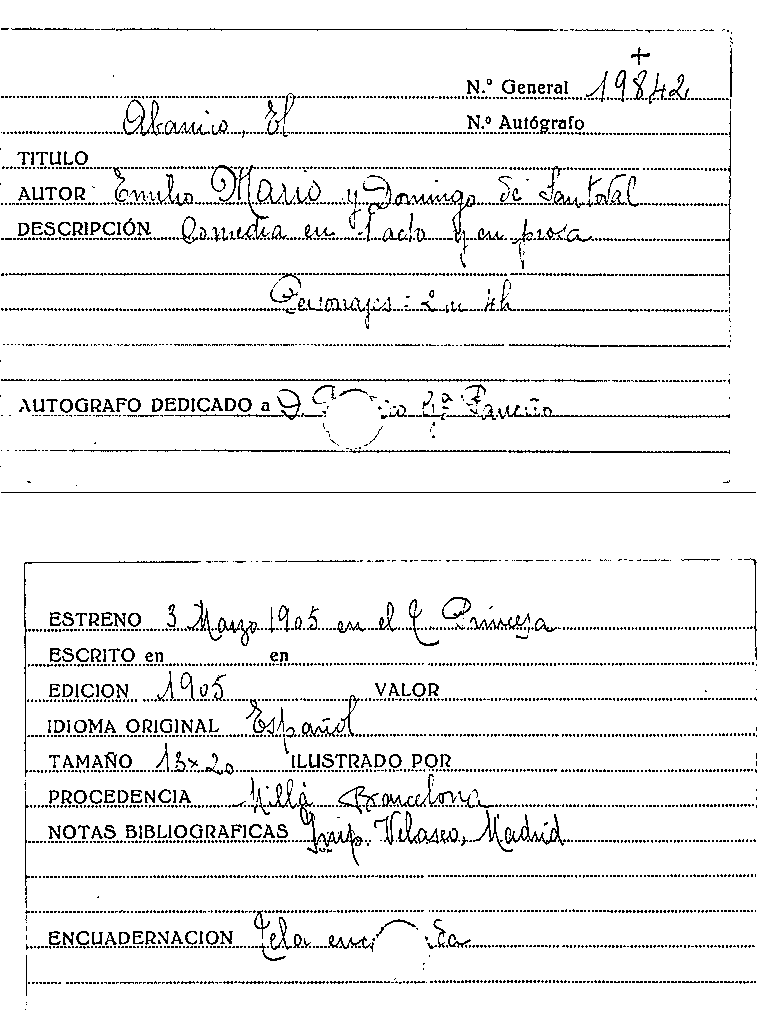 +
N.º General 19842
Abanico, El
N.º Autógrafo
TITULO
AUTOR Emilio Mario y Domingo de Santoval
DESCRIPCIÓN Comedia en 1 acto y en prosa
Personajes: 2 m 4h
AUTOGRAFO DEDICADO a D.
ESTRENO 3 Marzo 1905 en el T. Princesa
ESCRITO en en
EDICION 1905 VALOR
IDIOMA ORIGINAL Español
TAMAÑO 13x20 ILUSTRADO POR
PROCEDENCIA Millá Barcelona
NOTAS BIBLIOGRAFICAS Imp. Velasco, Madrid
ENCUADERNACION Tela